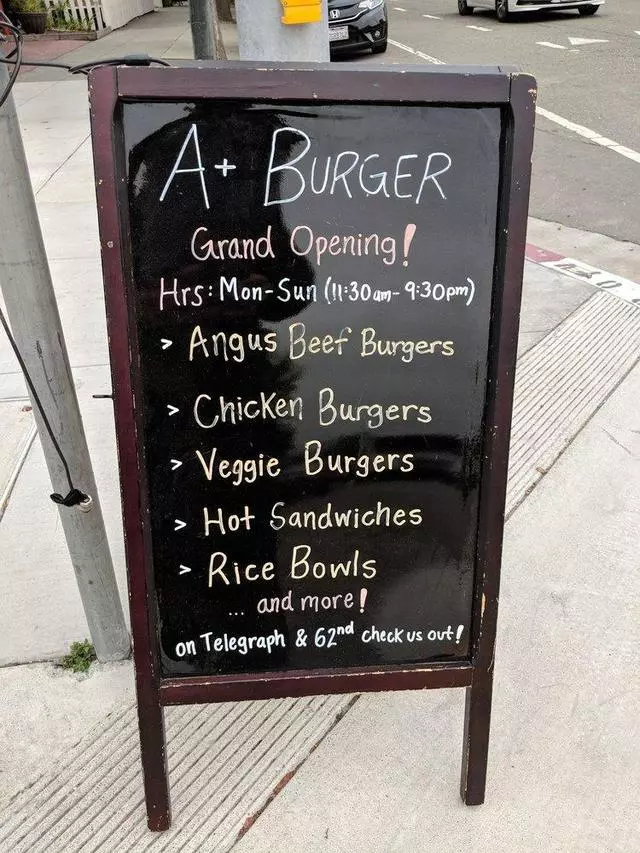 A+ BURGER
Grand Opening!
Hrs: Mon-Sun (11:30am-9:30pm)
> Angus Beef Burgers
> Chicken Burgers
> Veggie Burgers
> Hot Sandwiches
> Rice Bowls
... and more!
on Telegraph & 62nd check us out!